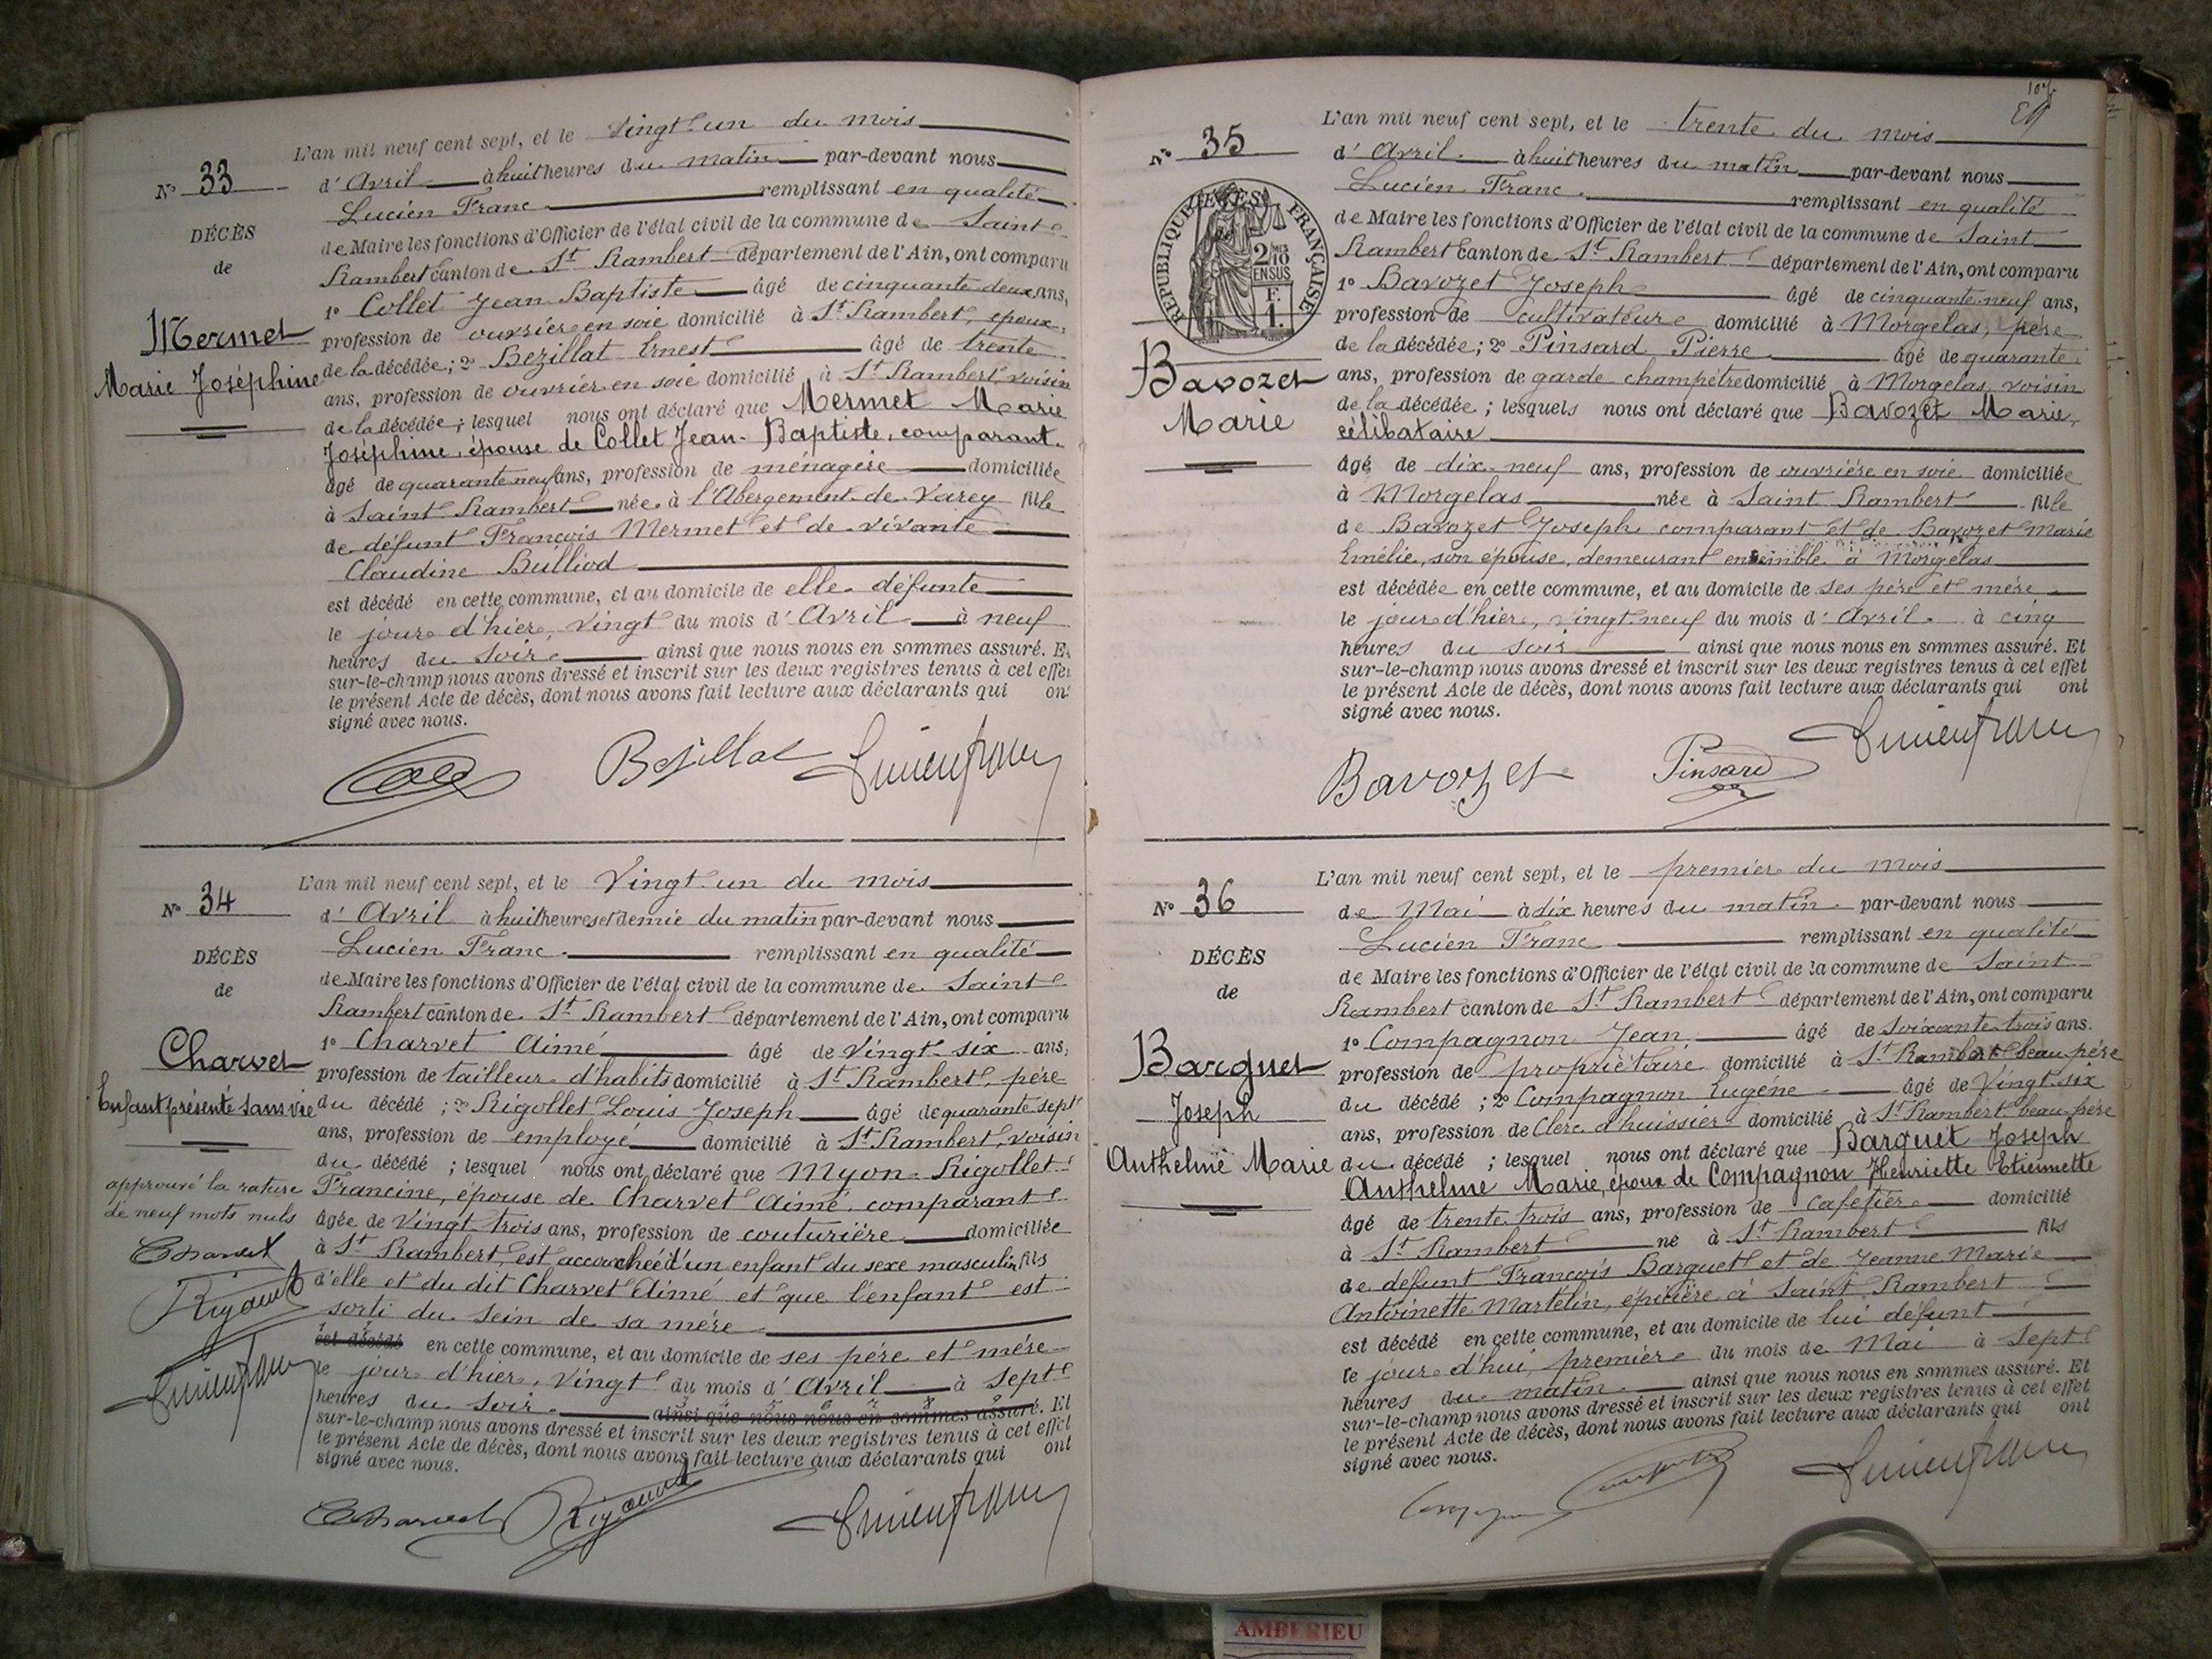 L'an mil neuf cent sept, et le Vingt un du mois
N° 33
d'Avril à huit heures du matin par-devant nous
Lucien Franc remplissant en qualité
DÉCÈS
de Maire les fonctions d'Officier de l'état civil de la commune de Saint
de
Rambert canton de St Rambert département de l'Ain, ont comparu
1° Collet Jean Baptiste âgé de cinquante deux ans,
Mermet
profession de ouvrier en soie domicilié à St Rambert, époux
Marie Joséphine
de la décédée; 2° Bezillat Ernest âgé de trente
ans, profession de ouvrier en soie domicilié à St Rambert, voisin
de la décédée; lesquel nous ont déclaré que Mermet Marie
Joséphine, épouse de Collet Jean-Baptiste, comparant
âgé de quarante neuf ans, profession de ménagère domiciliée
à Saint Rambert née à l'Abergement de Varey fille
de défunt François Mermet et de vivante
Claudine Bulliod
est décédé en cette commune, et au domicile de elle défunte
le jour d'hier, vingt du mois d'Avril à neuf
heures du soir ainsi que nous nous en sommes assuré. Et
sur-le-champ nous avons dressé et inscrit sur les deux registres tenus à cet effet
le présent Acte de décès, dont nous avons fait lecture aux déclarants qui ont
signé avec nous.
Bezillat Lucien Franc
L'an mil neuf cent sept, et le Vingt un du mois
N° 34
d'Avril à huit heures et demie du matin par-devant nous
Lucien Franc remplissant en qualité
DÉCÈS
de Maire les fonctions d'Officier de l'état civil de la commune de Saint
de
Rambert canton de St Rambert département de l'Ain, ont comparu
1° Charvet Aimé âgé de Vingt six ans,
Charvet
profession de tailleur d'habits domicilié à St Rambert, père
Enfant présenté sans vie
du décédé; 2° Rigollet Louis Joseph âgé de quarante sept
ans, profession de employé domicilié à St Rambert, voisin
du décédé; lesquel nous ont déclaré que Myon-Rigollet
approuvé la rature
de neuf mots nuls
Francine, épouse de Charvet Aimé, comparant
âgée de Vingt trois ans, profession de couturière domiciliée
à St Rambert, est accouchée d'un enfant du sexe masculin fils
d'elle et du dit Charvet Aimé et que l'enfant est
sorti du sein de sa mère
est décédé en cette commune, et au domicile de ses père et mère
le jour d'hier, vingt du mois d'Avril à sept
heures du soir ainsi que nous nous en sommes assuré. Et
sur-le-champ nous avons dressé et inscrit sur les deux registres tenus à cet effet
le présent Acte de décès, dont nous avons fait lecture aux déclarants qui ont
signé avec nous.
Charvet Lucien Franc
L'an mil neuf cent sept, et le trente du mois
N° 35
d'Avril à huit heures du matin par-devant nous
Lucien Franc remplissant en qualité
RÉPUBLIQUE FRANÇAISE
2/10 EN SUS
F. 1.
de Maire les fonctions d'Officier de l'état civil de la commune de Saint
Rambert canton de St Rambert département de l'Ain, ont comparu
1° Bavozet Joseph âgé de cinquante neuf ans,
profession de cultivateur domicilié à Morgelas, père
de la décédée; 2° Pinsard Pierre âgé de quarante
Bavozet
Marie
ans, profession de garde champêtre domicilié à Morgelas, voisin
de la décédée; lesquels nous ont déclaré que Bavozet Marie,
célibataire
âgé de dix-neuf ans, profession de ouvrière en soie domiciliée
à Morgelas née à Saint Rambert fille
de Bavozet Joseph comparant et de Bavozet Marie
Emélie, son épouse, demeurant ensemble à Morgelas
est décédée en cette commune, et au domicile de ses père et mère
le jour d'hier, vingt neuf du mois d'Avril à cinq
heures du soir ainsi que nous nous en sommes assuré. Et
sur-le-champ nous avons dressé et inscrit sur les deux registres tenus à cet effet
le présent Acte de décès, dont nous avons fait lecture aux déclarants qui ont
signé avec nous.
Bavozet Pinsard Lucien Franc
L'an mil neuf cent sept, et le premier du mois
N° 36
de Mai à dix heures du matin par-devant nous
Lucien Franc remplissant en qualité
DÉCÈS
de Maire les fonctions d'Officier de l'état civil de la commune de Saint
de
Rambert canton de St Rambert département de l'Ain, ont comparu
1° Compagnon Jean, âgé de soixante trois ans.
Barguet
Joseph
Anthelme Marie
profession de propriétaire domicilié à St Rambert beau-père
du décédé; 2° Compagnon Eugène âgé de Vingt six
ans, profession de Clerc d'huissier domicilié à St Rambert beau-père
du décédé; lesquel nous ont déclaré que Barguet Joseph
Anthelme Marie, époux de Compagnon Henriette Etiennette
âgé de trente trois ans, profession de cafetier domicilié
à St Rambert né à St Rambert fils
de défunt François Barguet et de Jeanne Marie
Antoinette Martelin, épicière à Saint Rambert
est décédé en cette commune, et au domicile de lui défunt
le jour d'hui, premier du mois de Mai à sept
heures du matin ainsi que nous nous en sommes assuré. Et
sur-le-champ nous avons dressé et inscrit sur les deux registres tenus à cet effet
le présent Acte de décès, dont nous avons fait lecture aux déclarants qui ont
signé avec nous.
Lucien Franc
AMBERIEU